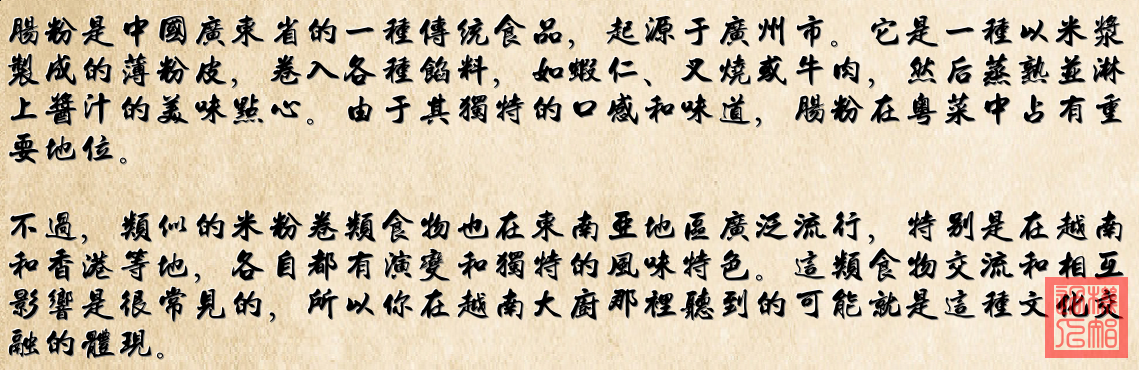 腸粉是中國廣東省的一種傳统食品，起源于廣州市。它是一種以米漿
製成的薄粉皮，卷入各種餡料，如蝦仁、叉燒或牛肉，然后蒸熟並淋
上醬汁的美味點心。由于其獨特的口感和味道，腸粉在粵菜中占有重
要地位。
不過，類似的米粉卷類食物也在東南亞地區廣泛流行，特别是在越南
和香港等地，各自都有演變和獨特的風味特色。這類食物交流和相互
影響是很常見的，所以你在越南大廚那裡聽到的可能就是這種文化交
融的體現。